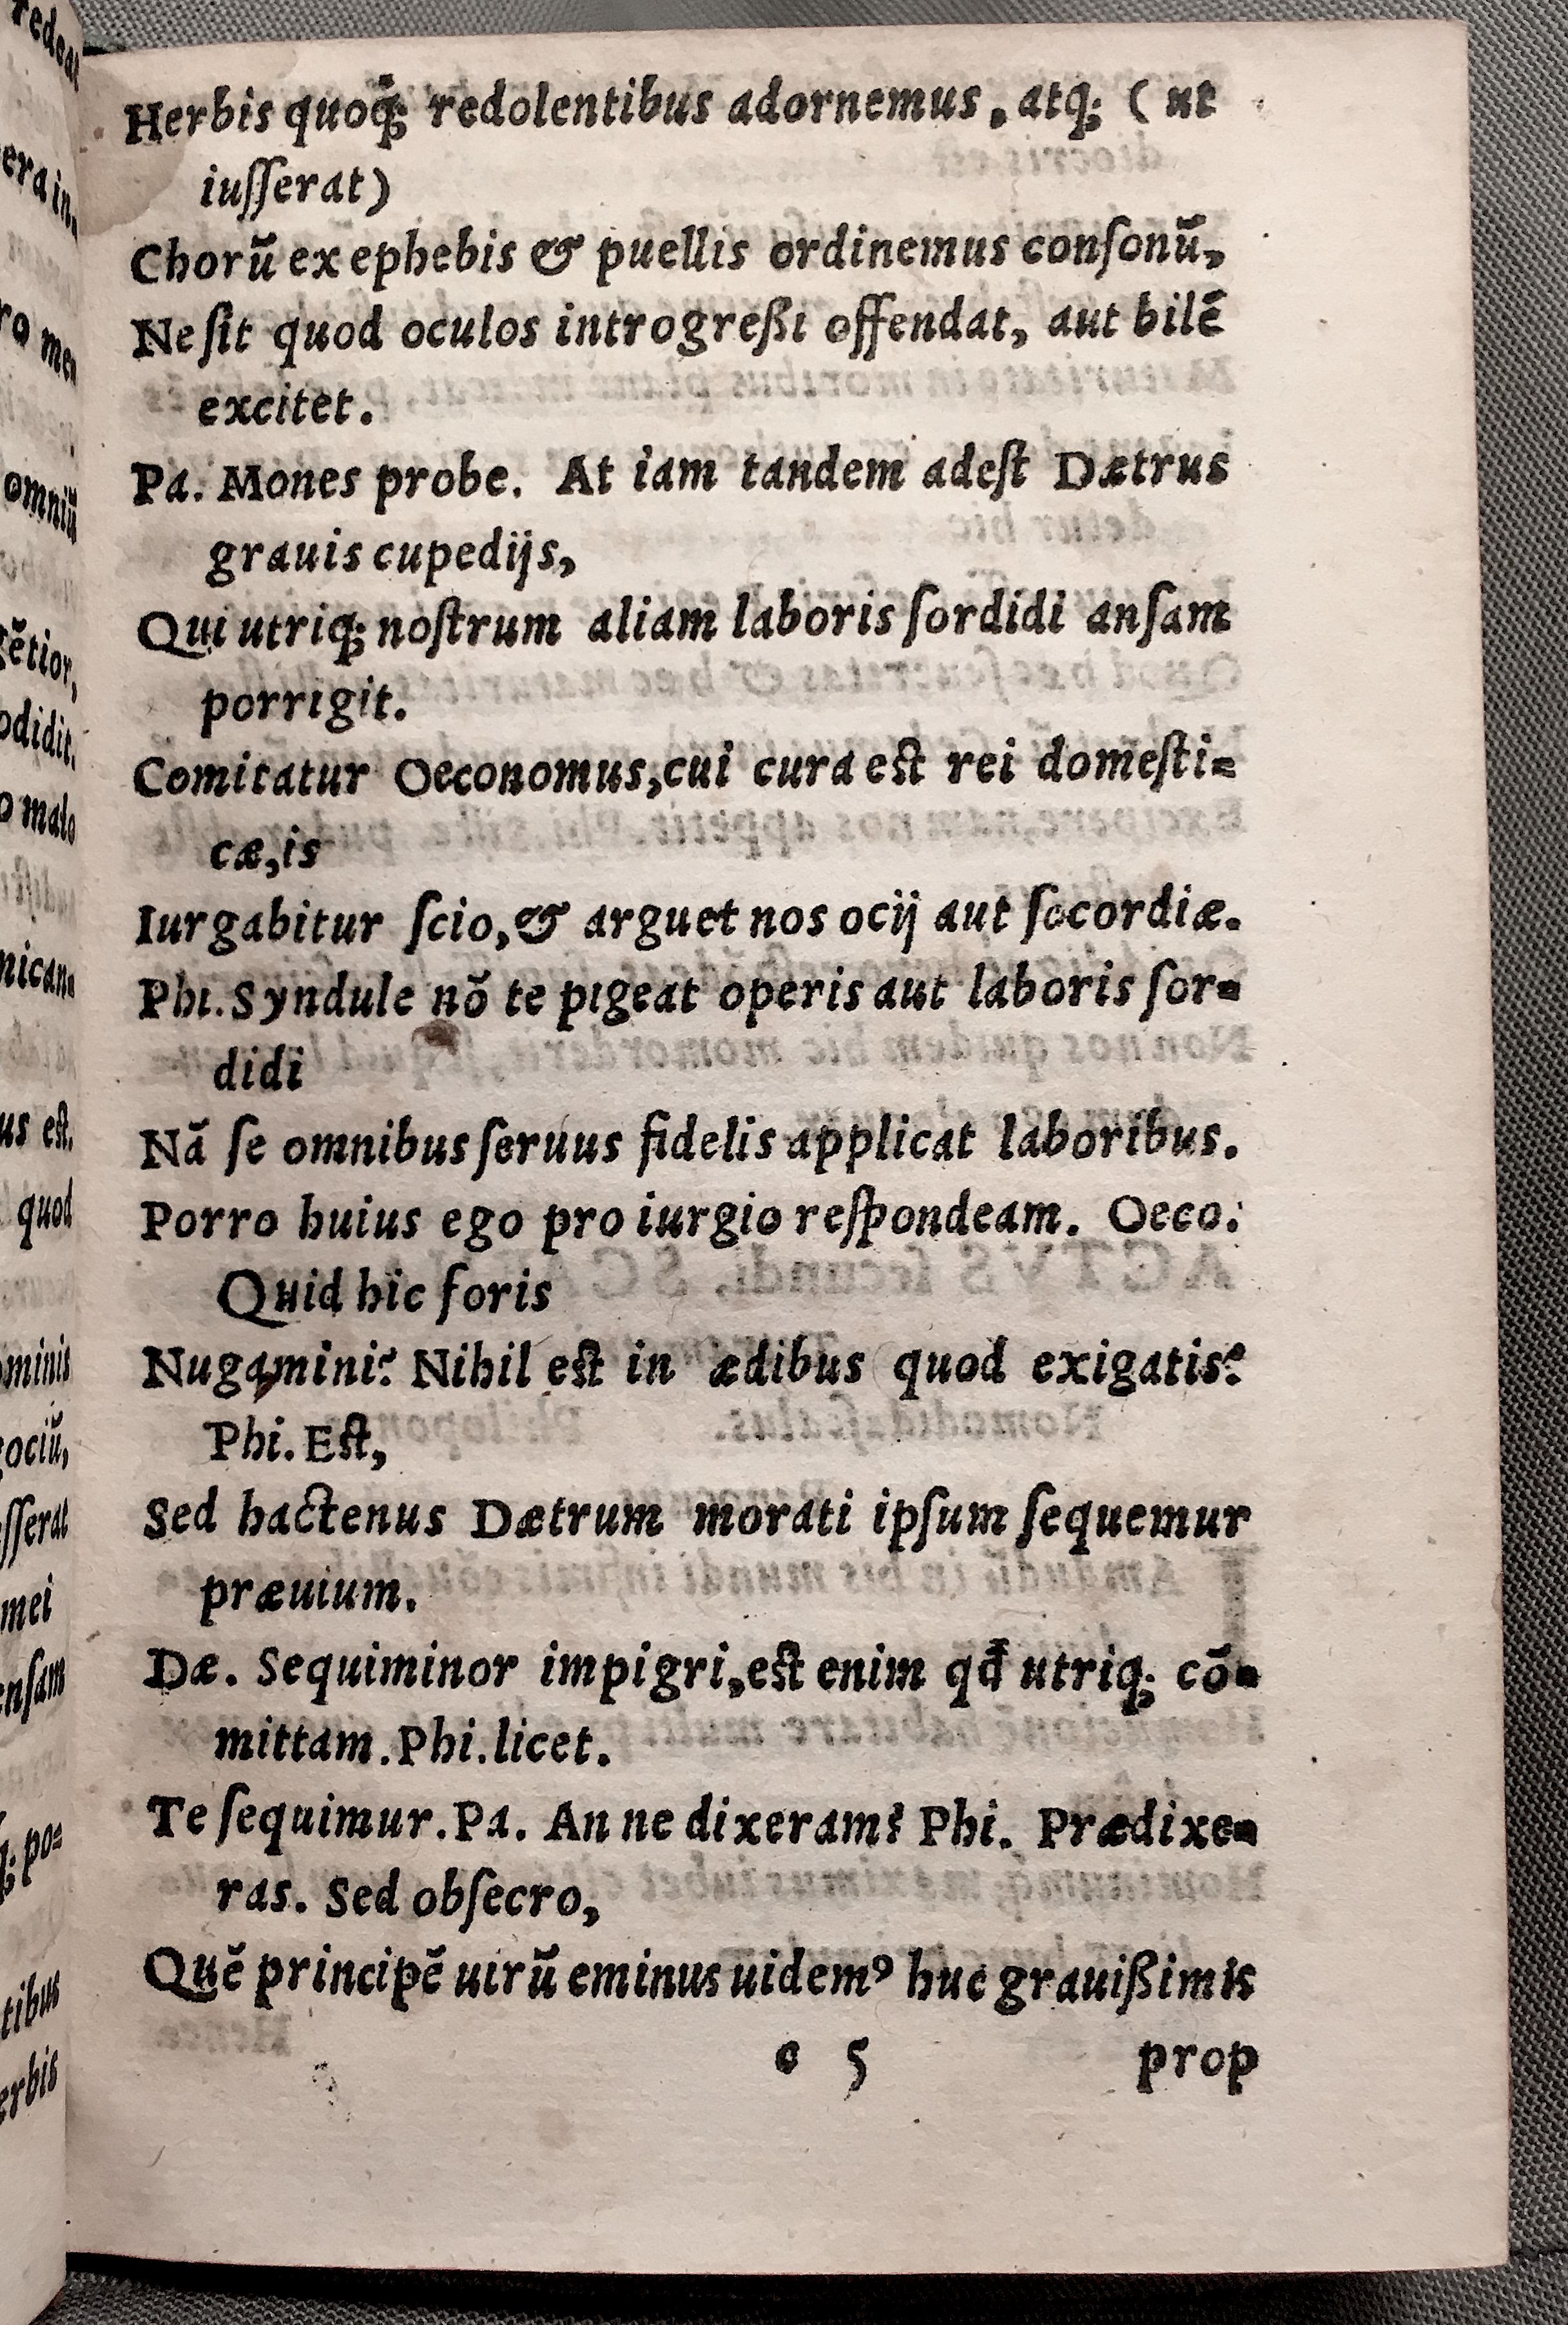 Herbis quoq̃; redolentibus adornemus, atq; ( ut
iuſſerat)
Chorū ex ephebis & puellis ordinemus conſonū,
Ne ſit quod oculos introgreßi offendat, aut bilē
excitet.
Pa. Mones probe. At iam tandem adeſt Dætrus
grauis cupedijs,
Qui utriq; noſtrum aliam laboris ſordidi anſam
porrigit.
Comitatur Oeconomus, cui cura eſt rei domeſti=
cæ, is
Iurgabitur ſcio, & arguet nos ocij aut ſocordiæ.
Phi. Syndule nō te pigeat operis aut laboris ſor=
didi
Nā ſe omnibus ſeruus fidelis applicat laboribus.
Porro huius ego pro iurgio reſpondeam. Oeco.
Quid hic foris
Nugamini? Nihil eſt in ædibus quod exigatis?
Phi. Eſt,
Sed hactenus Dætrum morati ipſum ſequemur
præuium.
Dæ. Sequiminor impigri, eſt enim qd̄ utriq; cō=
mittam. Phi. licet.
Te ſequimur. Pa. An ne dixeram? Phi. Prædixe=
ras. Sed obſecro,
Quē principē uirū eminus uidemꝰ huc grauißimis
c 5 prop